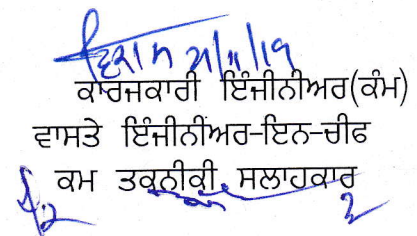 21/11/19
ਕਾਰਜਕਾਰੀ ਇੰਜੀਨੀਅਰ(ਕੰਮ)
ਵਾਸਤੇ ਇੰਜੀਨੀਂਅਰ-ਇਨ-ਚੀਫ
ਕਮ ਤਕਨੀਕੀ ਸਲਾਹਕਾਰ